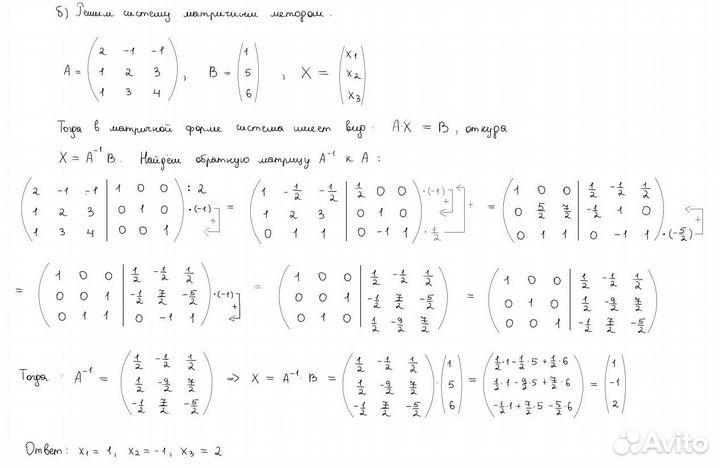 б) Решим систему матричным методом.
A = ( 2 -1 -1 ; 1 2 3 ; 1 3 4 ), B = ( 1 ; 5 ; 6 ), X = ( x₁ ; x₂ ; x₃ )
Тогда в матричной форме система имеет вид: A·X = B, откуда
X = A⁻¹B. Найдём обратную матрицу A⁻¹ к A:
( 2 -1 -1 | 1 0 0 ; 1 2 3 | 0 1 0 ; 1 3 4 | 0 0 1 ) :2 ·(-1) + = ( 1 -1/2 -1/2 | 1/2 0 0 ; 1 2 3 | 0 1 0 ; 0 1 1 | 0 -1 1 ) ·(-1) + ·1/2 + = ( 1 0 0 | 1/2 -1/2 1/2 ; 0 5/2 7/2 | -1/2 1 0 ; 0 1 1 | 0 -1 1 ) + ·(-5/2)
= ( 1 0 0 | 1/2 -1/2 1/2 ; 0 0 1 | -1/2 7/2 -5/2 ; 0 1 1 | 0 -1 1 ) ·(-1) + = ( 1 0 0 | 1/2 -1/2 1/2 ; 0 0 1 | -1/2 7/2 -5/2 ; 0 1 0 | 1/2 -9/2 7/2 ) = ( 1 0 0 | 1/2 -1/2 1/2 ; 0 1 0 | 1/2 -9/2 7/2 ; 0 0 1 | -1/2 7/2 -5/2 )
Тогда: A⁻¹ = ( 1/2 -1/2 1/2 ; 1/2 -9/2 7/2 ; -1/2 7/2 -5/2 ) => X = A⁻¹·B = ( 1/2 -1/2 1/2 ; 1/2 -9/2 7/2 ; -1/2 7/2 -5/2 ) · ( 1 ; 5 ; 6 ) = ( 1/2·1-1/2·5+1/2·6 ; 1/2·1-9/2·5+7/2·6 ; -1/2·1+7/2·5-5/2·6 ) = ( 1 ; -1 ; 2 )
Ответ: x₁ = 1, x₂ = -1, x₃ = 2
Avito